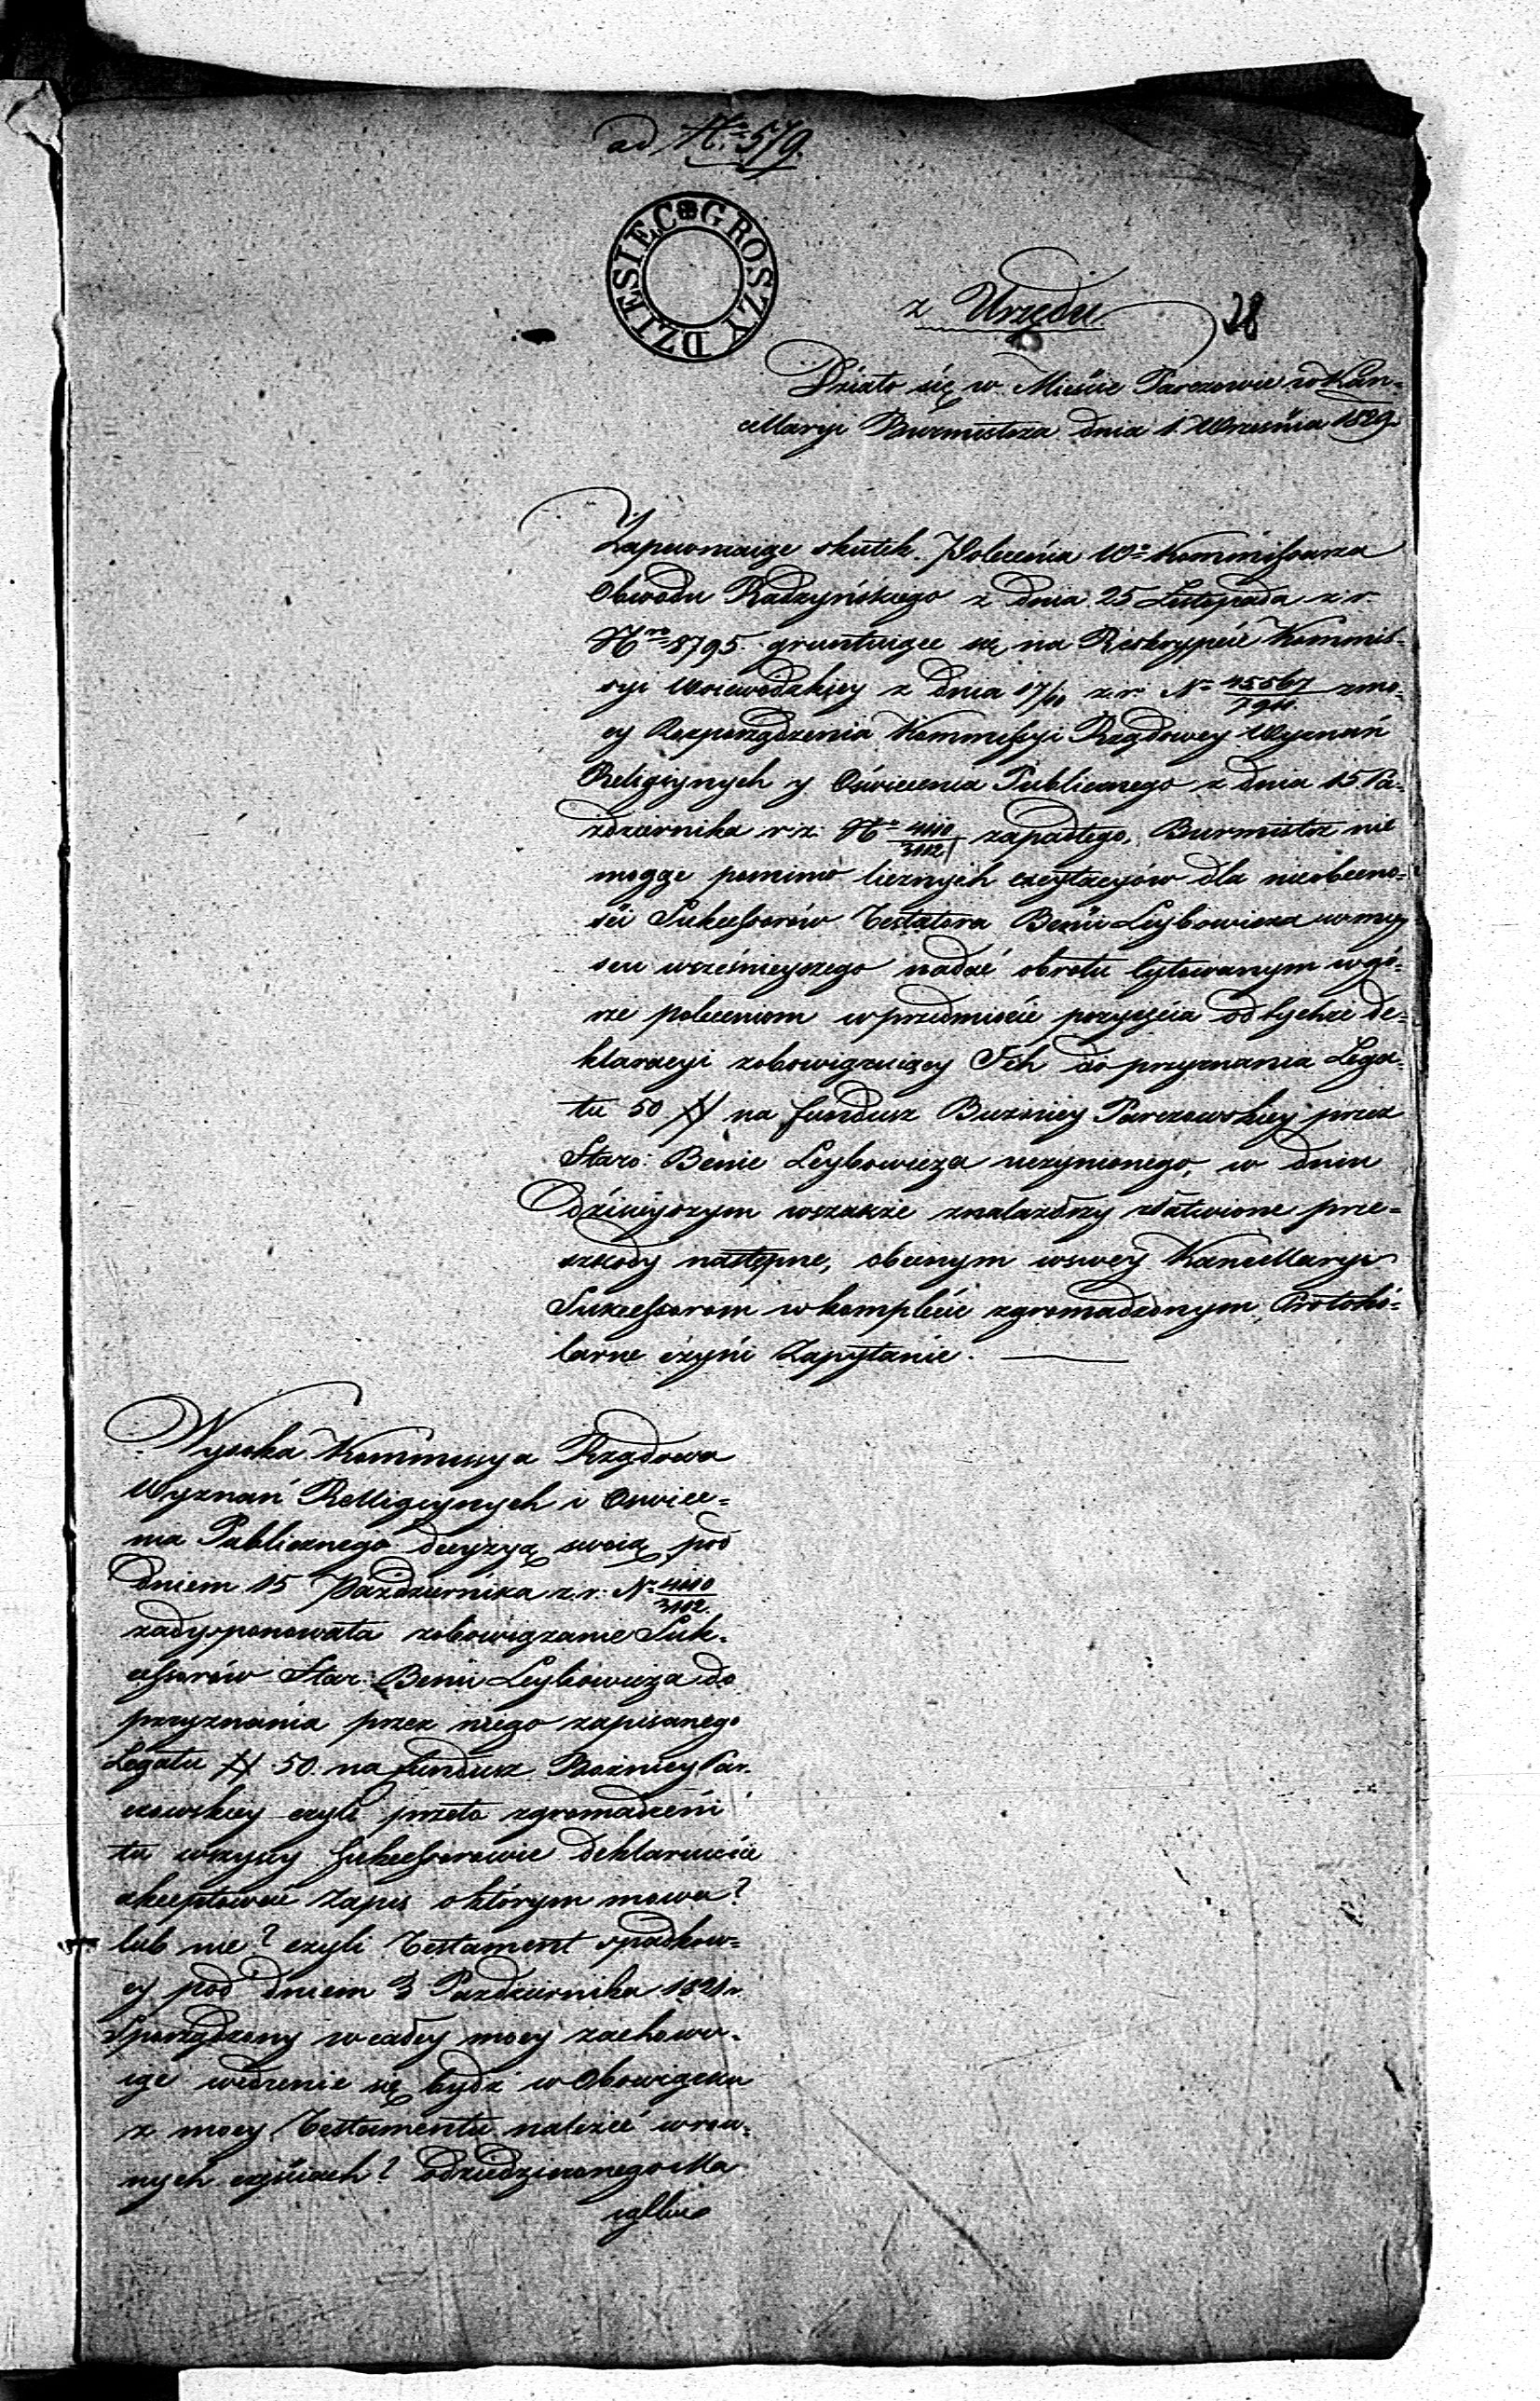 ad Nro 579.
DZIESIĘC GROSZY
z Urzędu
28
Działo się w Mieście Parczowie w Kan=
cellaryi Burmistrza dnia 1. Września 1829
Zapewniaiąc skutek Polecenia Wo Kommissarza
Obwodu Radzyńskiego z dnia 25 Listopada z r.
Nro 8795. gruntuiące się na Reskrypcie Kommis=
syi Woiewodzkiey z dnia 17/10 z.r. No 45567 zmo=
cy Rozporządzenia Kommissyi Rządowey Wyznań
Religiynych y Oświecenia Publicznego z dnia 15 Pa=
ździernika r.z. No 4110/3102 zapadłego, Burmistrz nie
mogąc pomimo licznych excytacyów dla nieobecno=
ści Sukcessorów Testatora Beni Leybowicza w miey
scu wcześnieyszego nadać obrotu cytowanym w gó=
rze poleceniom w przedmiocie pozyścia od tychże de=
klaracyi zobowiązuiącey Ich do przyznania Lega=
tu 50 # na fundusz Bużnicy Parczowskiey przez
Staro: Benie Leybowicza uczynionego, w dniu
Dzisieyszym wszakże znalazłszy ułatwione prze=
szkody następne, obecnym w swey Kancellaryi
Sukcessorom w komplecie zgromadzonym, Protokó=
larne czyni Zapytanie.
Wysoka Kommissya Rządowa
Wyznań Relligiynych i Oświece=
nia Publicznego decyzyą swoią pod
Dniem 15 Października z.r. No 4110/3102.
zadysponowała zobowiązanie Suk=
cessorów Star: Beni Leybowicza do
przyznania przez niego zapisanego
Legatu # 50 na fundusz Bożnicy Par=
czowskiey czyli przeto zgromadzeni
tu wszyscy Sukcessorowie deklaruiecie
akceptować Zapis o którym mowa?
lub nie? czyli Testament spadkow=
y pod dniem 3 Października 1821 r.
Sporządzony w całey mocy zachowu=
iąc widzenie się bydź w Obowiązku
z mocy Testamentu należeć w rów=
nych częściach? Odziedziczonego Ma
iątku